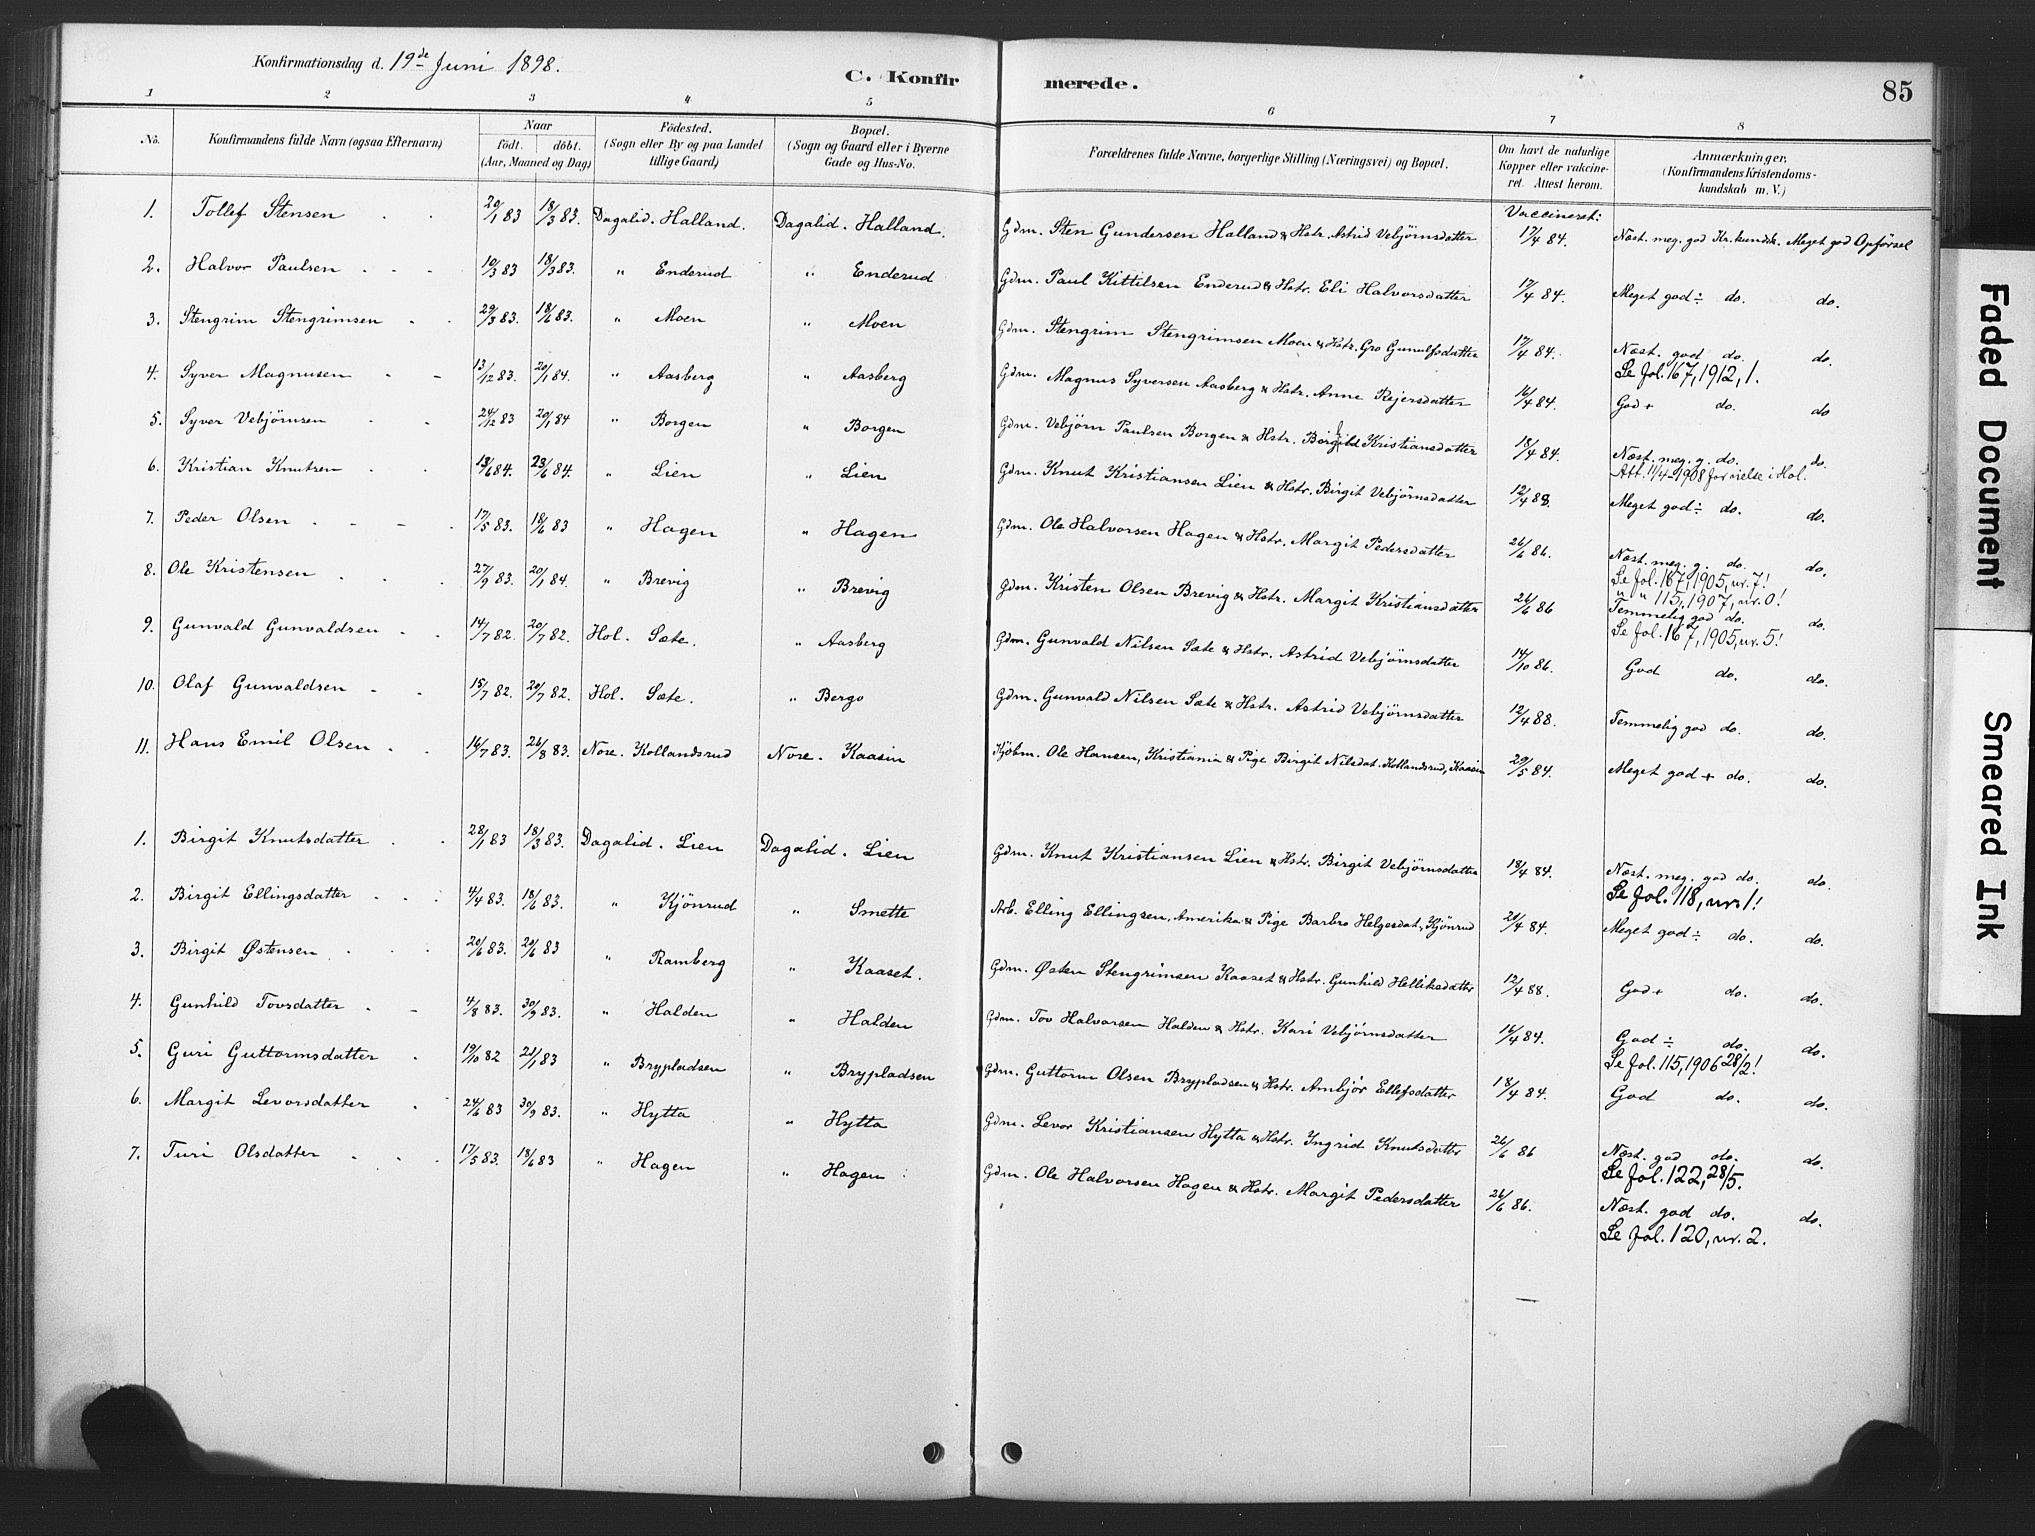 Konfirmationsdag d. 19de Juni 1898.
C. Konfirmerede.
85
1 2 3 4 5 6 7 8
No.
Konfirmandens fulde Navn (ogsaa Efternavn)
Naar
födt. döbt.
(Aar, Maaned og Dag)
Födested.
(Sogn eller By og paa Landet
tillige Gaard)
Bopæl.
(Sogn og Gaard eller i Byerne
Gade og Hus-No.
Forældrenes fulde Navne, borgerlige Stilling (Næringsvei) og Bopæl.
Om havt de naturlige
Kopper eller vakcine-
ret. Attest herom.
Anmærkninger.
(Konfirmandens Kristendoms-
kundskab m. V.)
Vaccineret:
1. Tollef Stensen 20/1 83 18/3 83. Dagalid. Halland. Dagalid. Halland. Gdm. Sten Gundersen Halland & Hstr. Astrid Vebjörnsdatter 17/4 84. Næst. meg. god Kr.kundsk. Meget god Opförsel
2. Halvor Paulsen 10/3 83 18/3 83. " Enderud " Enderud Gdm. Paul Kittilsen Enderud & Hstr. Eli Halvorsdatter 17/4 84. Meget god ÷ do. do.
3. Stengrim Stengrimsen 29/3 83. 18/6 83. " Moen " Moen Gdm. Stengrim Stengrimsen Moen & Hstr. Gro Gunulfsdatter 17/4 84. Næst. god do. do.
Se fol. 167, 1912, 1.
4. Syver Magnusen 13/12 83. 20/1 84. " Aasberg " Aasberg Gdm. Magnus Syversen Aasberg & Hstr. Anne Rejersdatter 16/4 84. God + do. do
5. Syver Vebjörnsen 24/12 83 20/1 84 " Borgen " Borgen Gdm. Vebjörn Paulsen Borgen & Hstr. Borghild Kristiansdatter 18/4 84. Næst. meg. g. do. do.
Att. 11/4-1908 for vielse i Hol.
6. Kristian Knutsen 13/6 84. 23/6 84. " Lien " Lien Gdm. Knut Kristiansen Lien & Hstr. Birgit Vebjörnsdatter 12/4 88. Meget god ÷ do. do.
7. Peder Olsen 17/5 83. 18/6 83 " Hagen " Hagen Gdm. Ole Halvorsen Hagen & Hstr. Margit Pedersdatter 26/6 86. Næst. meg. g. do. do.
Se fol. 167, 1905, nr. 7!
" " 115, 1907, nr. 0!
8. Ole Kristensen 27/9 83. 20/1 84. " Brevig " Brevig Gdm. Kristen Olsen Brevig & Hstr. Margit Kristiansdatter 26/6 86 Temmelig god do. do.
Se fol. 167, 1905, nr. 5!
9. Gunvald Gunvaldsen 14/7 82. 20/7 82. Hol. Sæte. " Aasberg Gdm. Gunvald Nilsen Sæte & Hstr. Astrid Vebjörnsdatter 14/10 86. God do. do.
10. Olaf Gunvaldsen 15/7 82. 20/7 82. Hol. Sæte. " Bergo Gdm. Gunvald Nilsen Sæte & Hstr. Astrid Vebjörnsdatter 12/4 88. Temmelig god do. do.
11. Hans Emil Olsen 16/7 83. 26/8 83. Nore. Kollandsrud Nore. Kaasin Kjöbm. Ole Hansen, Kristiania & Pige Birgit Nilsdat. Kollandsrud, Kaasin 20/5 84. Meget god + do. do.
1. Birgit Knutsdatter 28/1 83 18/3 83. Dagalid. Lien Dagalid. Lien Gdm. Knut Kristiansen Lien & Hstr. Birgit Vebjörnsdatter 18/4 84. Næst. meg. god do. do.
Se fol. 118, nr. 1!
2. Birgit Ellingsdatter 4/4 83. 18/6 83. " Kjönrud " Smette Arb. Elling Ellingsen, Amerika & Pige Barbro Helgesdat., Kjönrud 20/4 84. Meget god ÷ do. do.
3. Birgit Østensen 20/6 83. 20/6 83 " Ramberg " Kaaset. Gdm. Østen Stengrimsen Kaaset & Hstr. Gunhild Helliksdatter 12/4 88. God + do. do.
4. Gunhild Tovsdatter 4/8 83. 30/9 83. " Halden " Halden Gdm. Tov Halvorsen Halden & Hstr. Kari Vebjörnsdatter 16/4 84. God ÷ do. do.
Se fol. 115, 1906 28/2!
5. Guri Guttormsdatter 19/10 82 21/1 83 " Brypladsen " Brypladsen Gdm. Guttorm Olsen Brypladsen & Hstr. Ambjör Ellefsdatter 18/4 84. God do. do.
6. Margit Levorsdatter 24/6 83 30/9 83. " Hytta " Hytta Gdm. Levor Kristiansen Hytta & Hstr. Ingrid Knutsdatter 26/6 86 Næst. god do. do.
Se fol. 122, 28/5.
7. Turi Olsdatter 17/5 83. 18/6 83 " Hagen " Hagen Gdm. Ole Halvorsen Hagen & Hstr. Margit Pedersdatter 26/6 86. Næst. god do. do.
Se fol. 120, nr. 2.
Faded Document
Smeared Ink